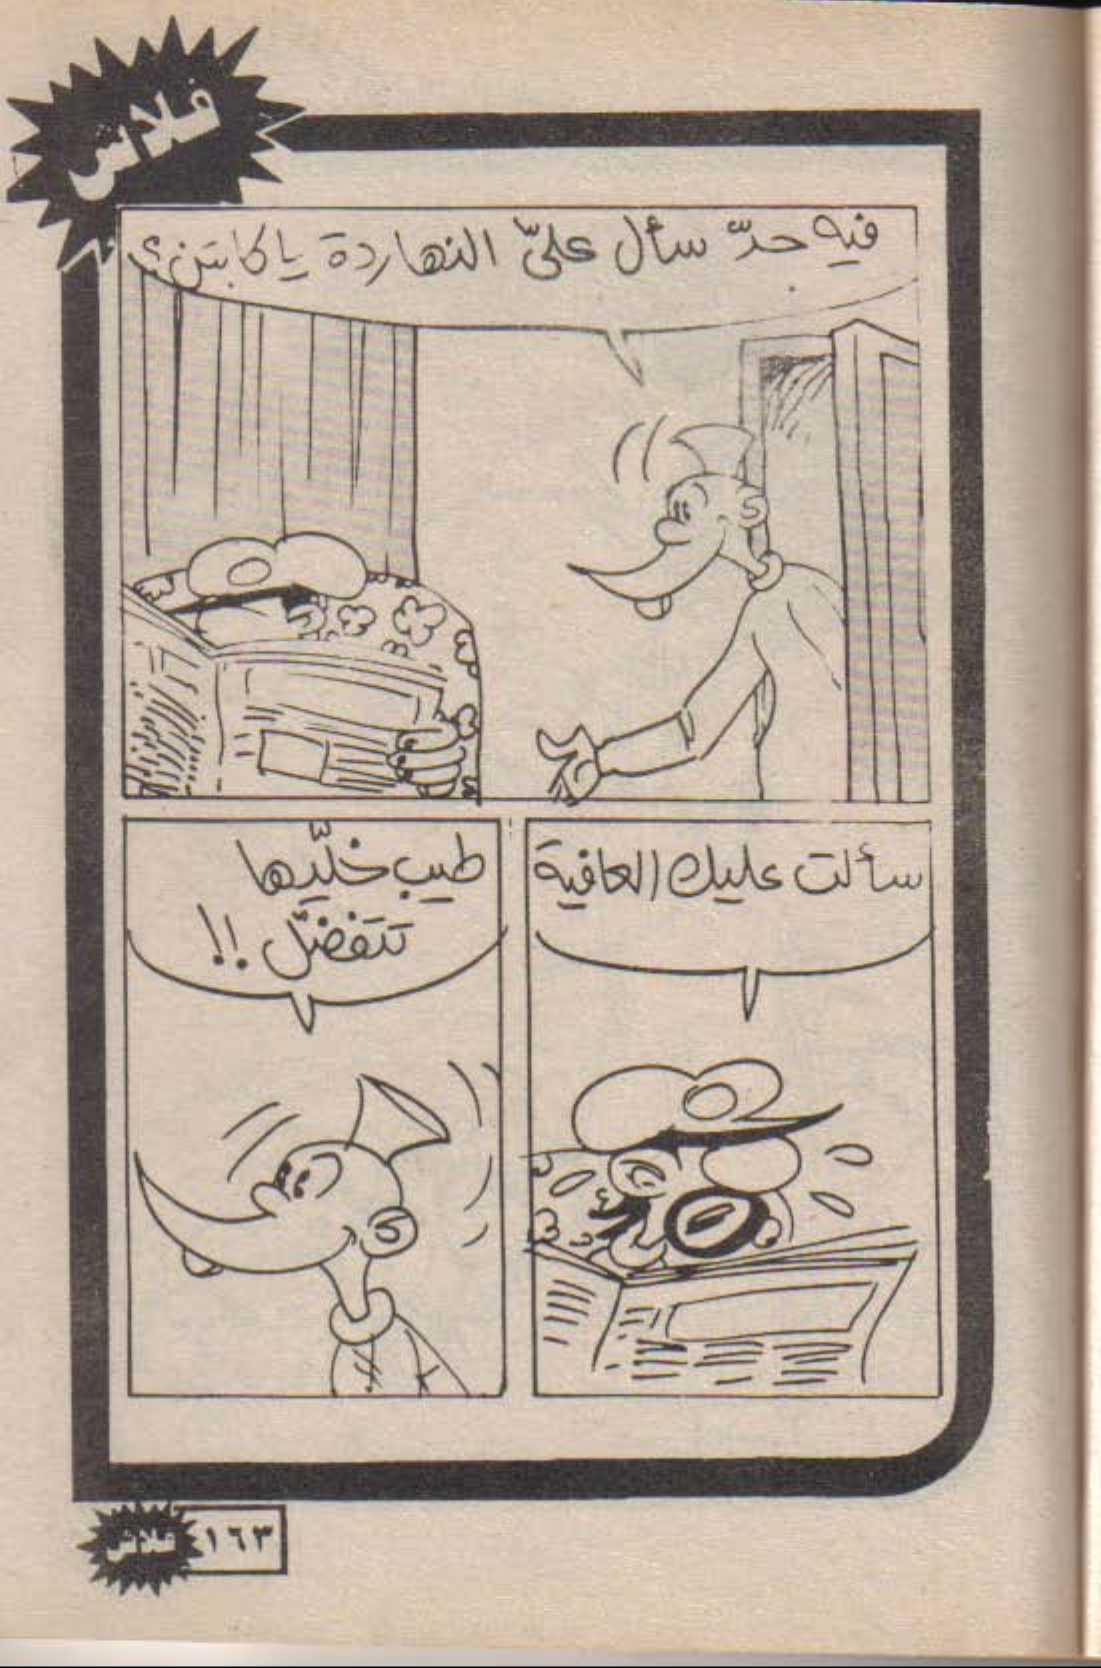 فلاش
فيه حدّ سأل عليّ النهاردة يا كابتن؟
سألت عليك العافية
طيب خلّيها
تتفضّل!!
١٦٣
فلاش